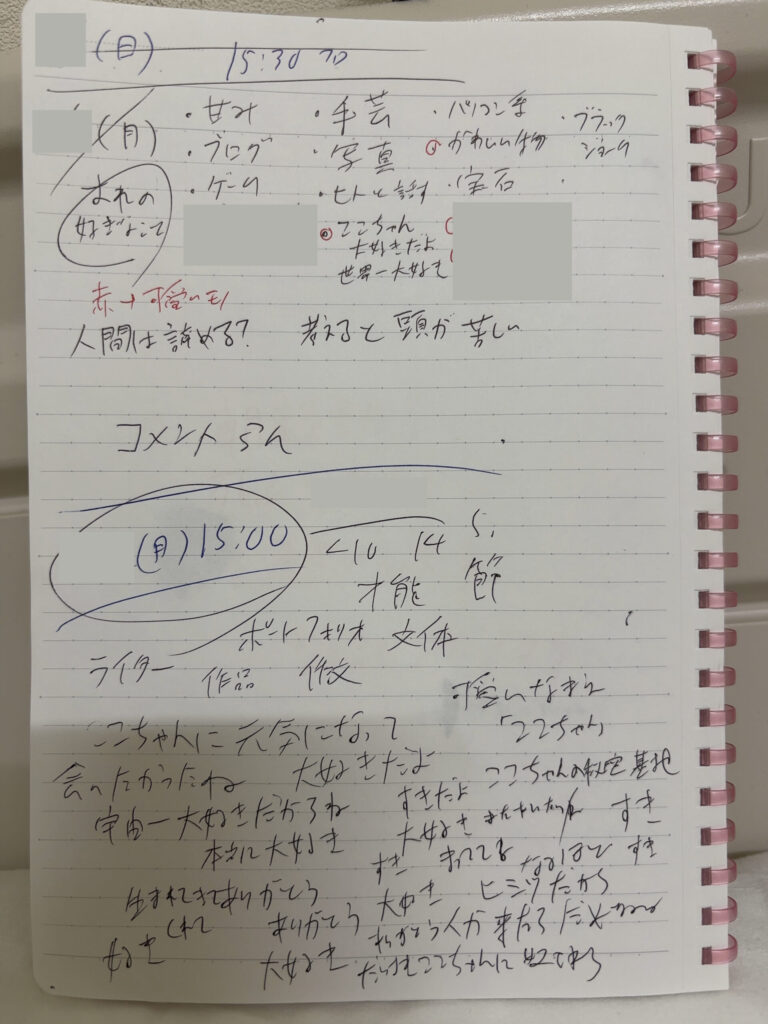 (日) 15:30
(月)
・甘み ・手芸 ・パソコン ・ブラック
・ブログ ・写真 かわいい物 ジョーク
・ゲーム ・ヒトと話す ・宝石 ・
おれの
好きなこと
ここちゃん
大好きだよ
世界一大好き
赤→可愛いモノ
人間は諦める? 考えると頭が苦しい
コメントらん
(月) 15:00
<10 14 5.
才能 節
ポートフォリオ 文体
ライター 作品 作文
可愛いなまえ
「ここちゃん」
ここちゃんに元気になって
会いたかったね 大好きだよ
すきだよ ここちゃんの秘密基地
宇宙一大好きだからね
大好き すき
本当に大好き
すき まってる なるほど すき
生まれてきてありがとう
大好き ヒミツだから
くれて ありがとう
ありがとう 人が来たらだめ
好き 大好き
ここちゃんに